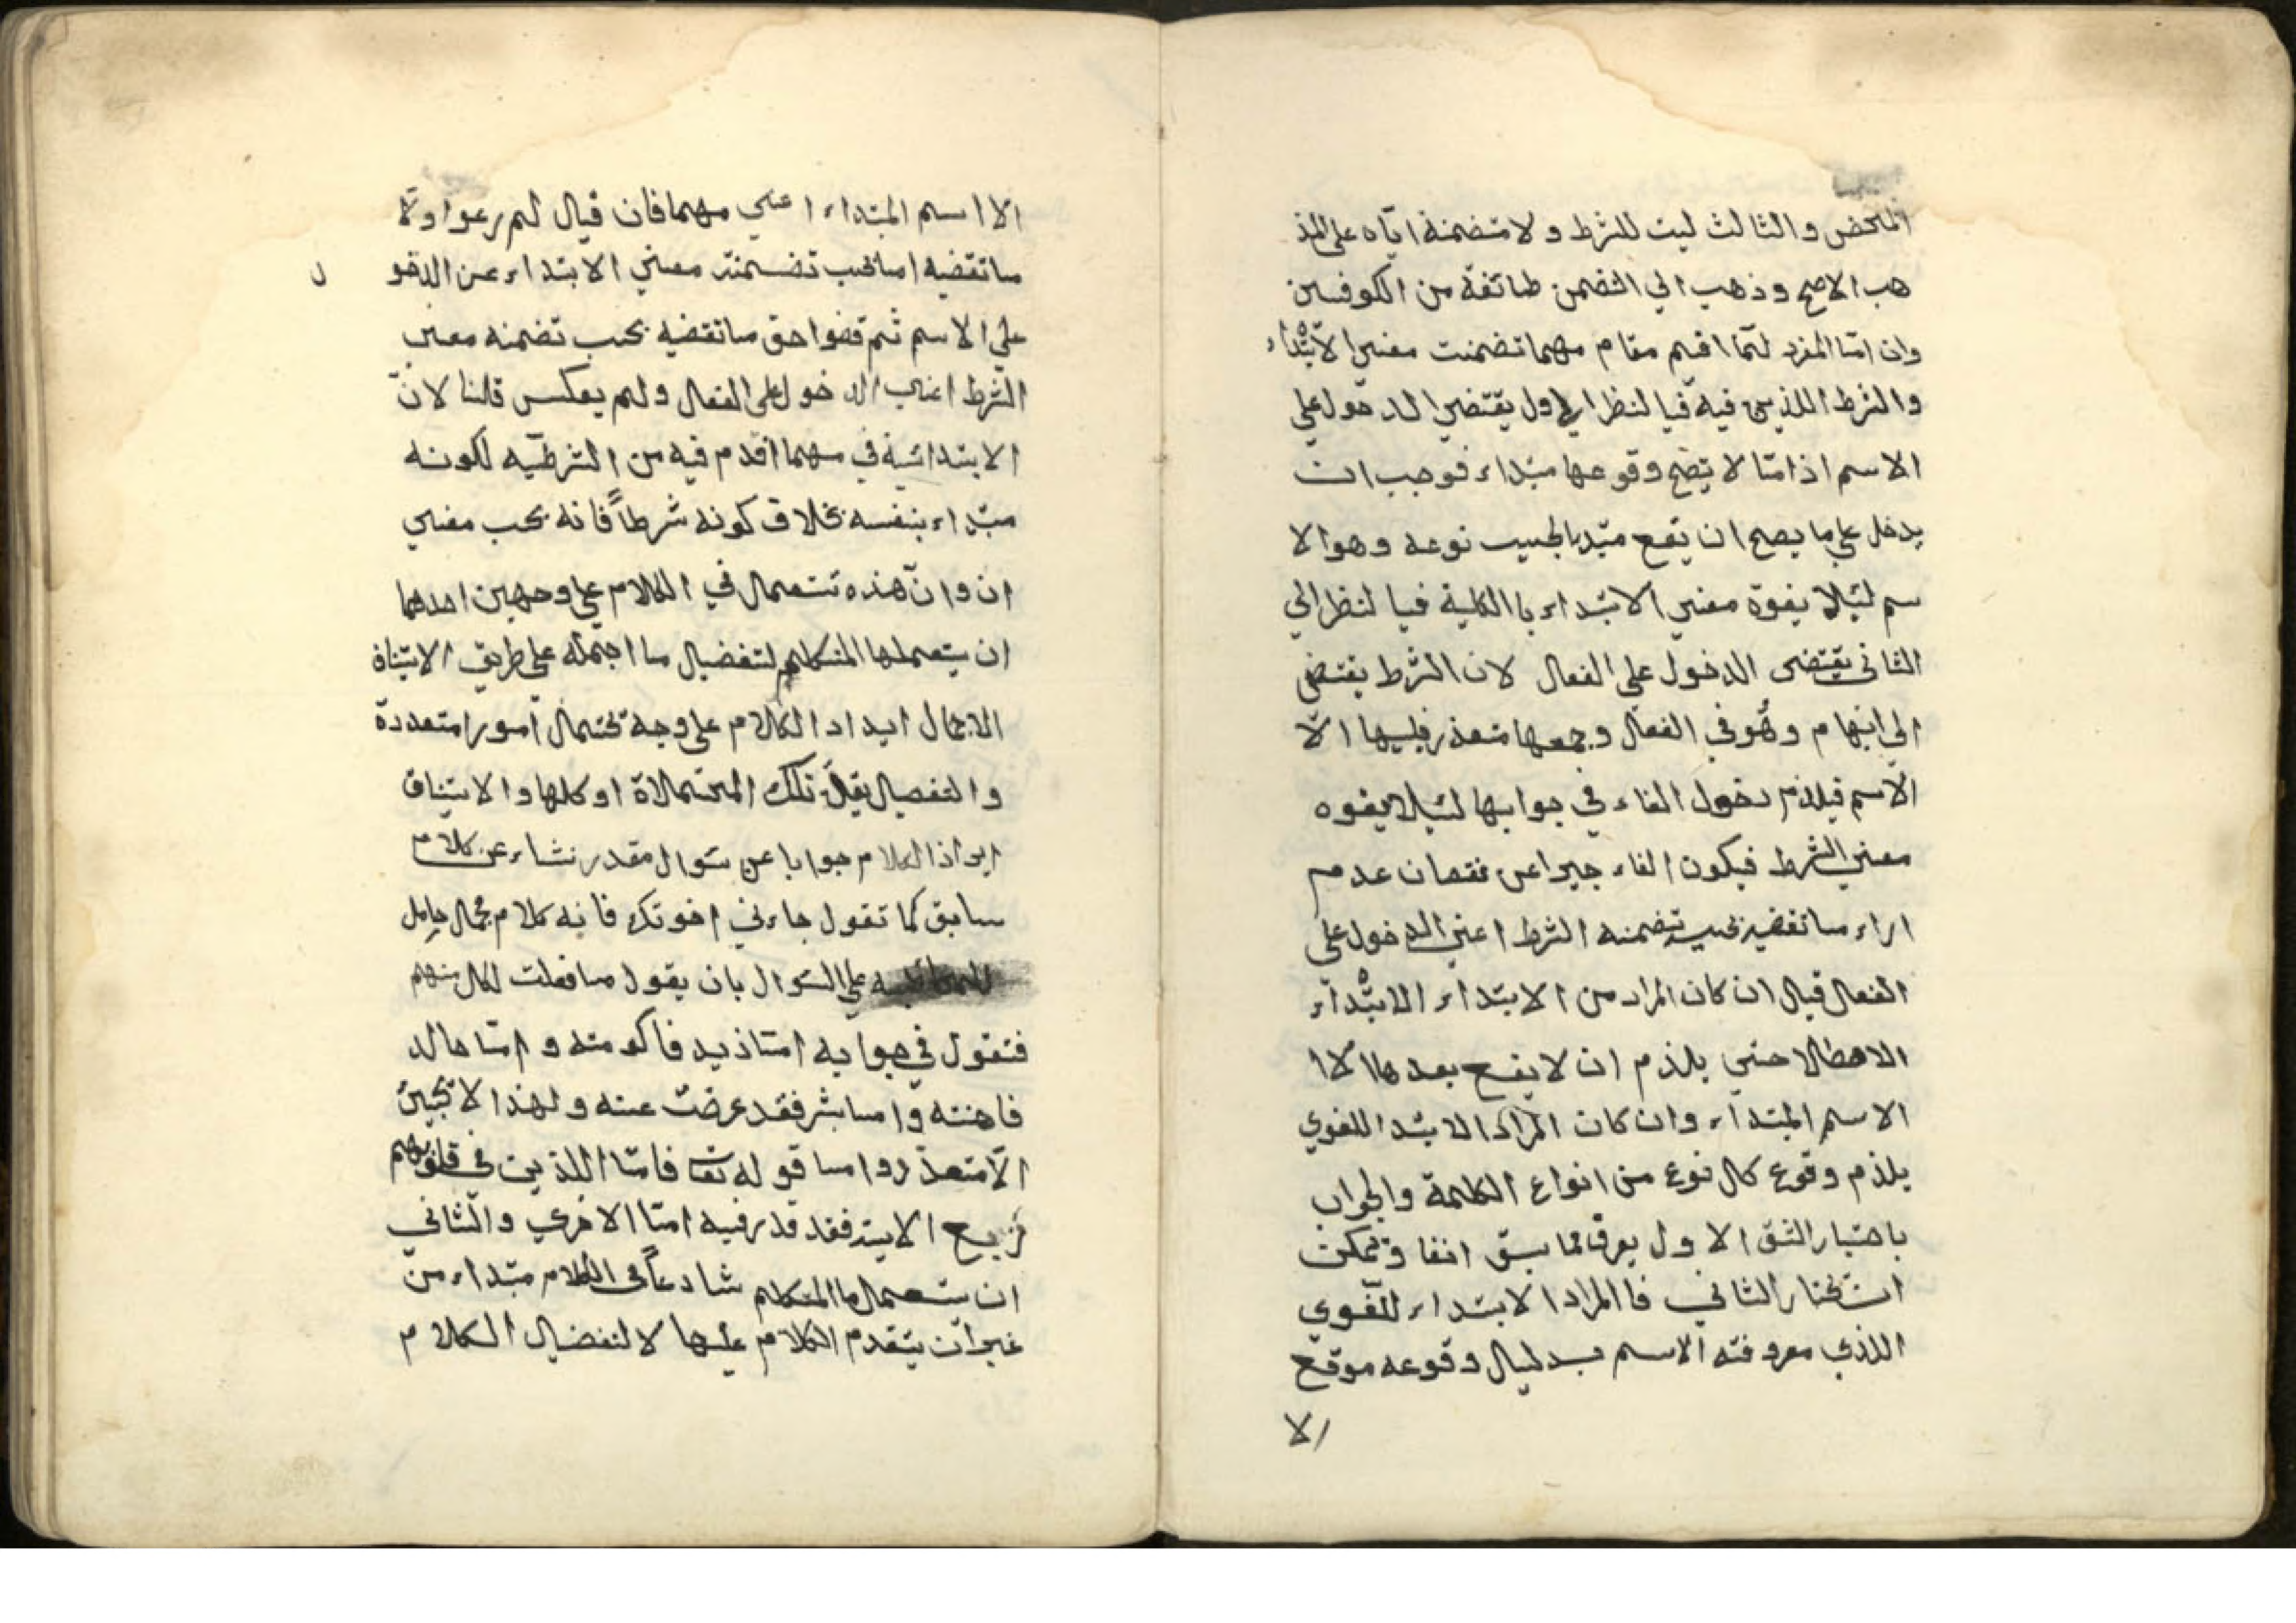 المحض والثالث ليت للشرط ولا متضمنة اياه على المذ
هب الاصح وذهب الي التضمن طائفة من الكوفيين
وان امّا المفرد لمّا اقيم مقام مهما تضمنت معني الابتداء
والشرط اللذين فيه فيا لنظر الي الاول يقتضي الدخول علي
الاسم اذ امّا لا يصح وقوعها مبتداء فوجب ان
يدخل علي ما يصح ان يقع مبتدا بحسب نوعه وهو الا
سم لئيلا يفوة معني الابتداء با الكلية فيا لنظر الي
الثاني يقتضى الدخول على الفعل لان الشرط يقتضي
الي ابهام وهو في الفعل وجمعها متعذر فليها الّا
الاسم فيلزم دخول الفاء في جوابها لئيلا يفوه
معني الشرط فيكون الفاء جيرا عن نقصان عدم
اراء ما تقضيه بحسب تضمنه الشرط اعني الدخول علي
الفعل قيل ان كان المراد من الابتداء الابتداء
الاصطلا حتي يلزم ان لا يقع بعدها الا
الاسم المبتداء وان كان المراد الابتدا اللغوي
يلزم وقوع كل نوع من انواع الكلمة والجواب
باختيار الشق الاول يعرف مما سبق انفا ويمكن
ان نختار الثاني فا المراد الابتداء اللّغوي
اللذي معروفته الاسم بدليل وقوعه موقع
الا
الا اسم المبتداء اعني مهما فان قيل لم رعوا اولا
ما تقضيه اما بحسب تضمنت معني الابتداء عن الدخو
ل
علي الاسم ثم قضوا حق ما تقضيه بحسب تضمنه معني
الشرط اعني الدخول على الفعل ولم يعكس قلنا لانّ
الابتدائية في مهما اقدم فيه من الشرطيّه لكونه
مبتداء بنفسه بخلاف كونه شرطاً فانه بحسب معني
ان وانّ هذه تستعمل في الكلام علي وجهين احدهما
ان يستعملها المتكلم لتفضيل ما اجمله على طريق الاستيناف
الاجمال ايداد الكلام على وجه تحتمل امورا متعددة
والتفصيل تلك المحتملاة او كلها والاستيناف
ايراد الكلام جوابا عن سؤال مقدر نشاء عن كلام
سابق كما تقول جاءني اخوتك فانه كلام مجمل حامل
علي السؤال بان يقول ما فعلت لكل منهم
فتقول في جوابه امّا زيد فاكرمته وامّا خالد
فاهنته واما بشر فقد عرضت عنه ولهذا لا تجيئ
الّا متعذروا ما قوله تعا فامّا اللذين في قلوبهم
زيع الايته فقد قدر فيه امّا الاخري والثاني
ان يستعملها المتكلم شادعاً في الكلام مبتداء من
غير ان يتقدم الكلام عليها لا لتفضيل الكلام